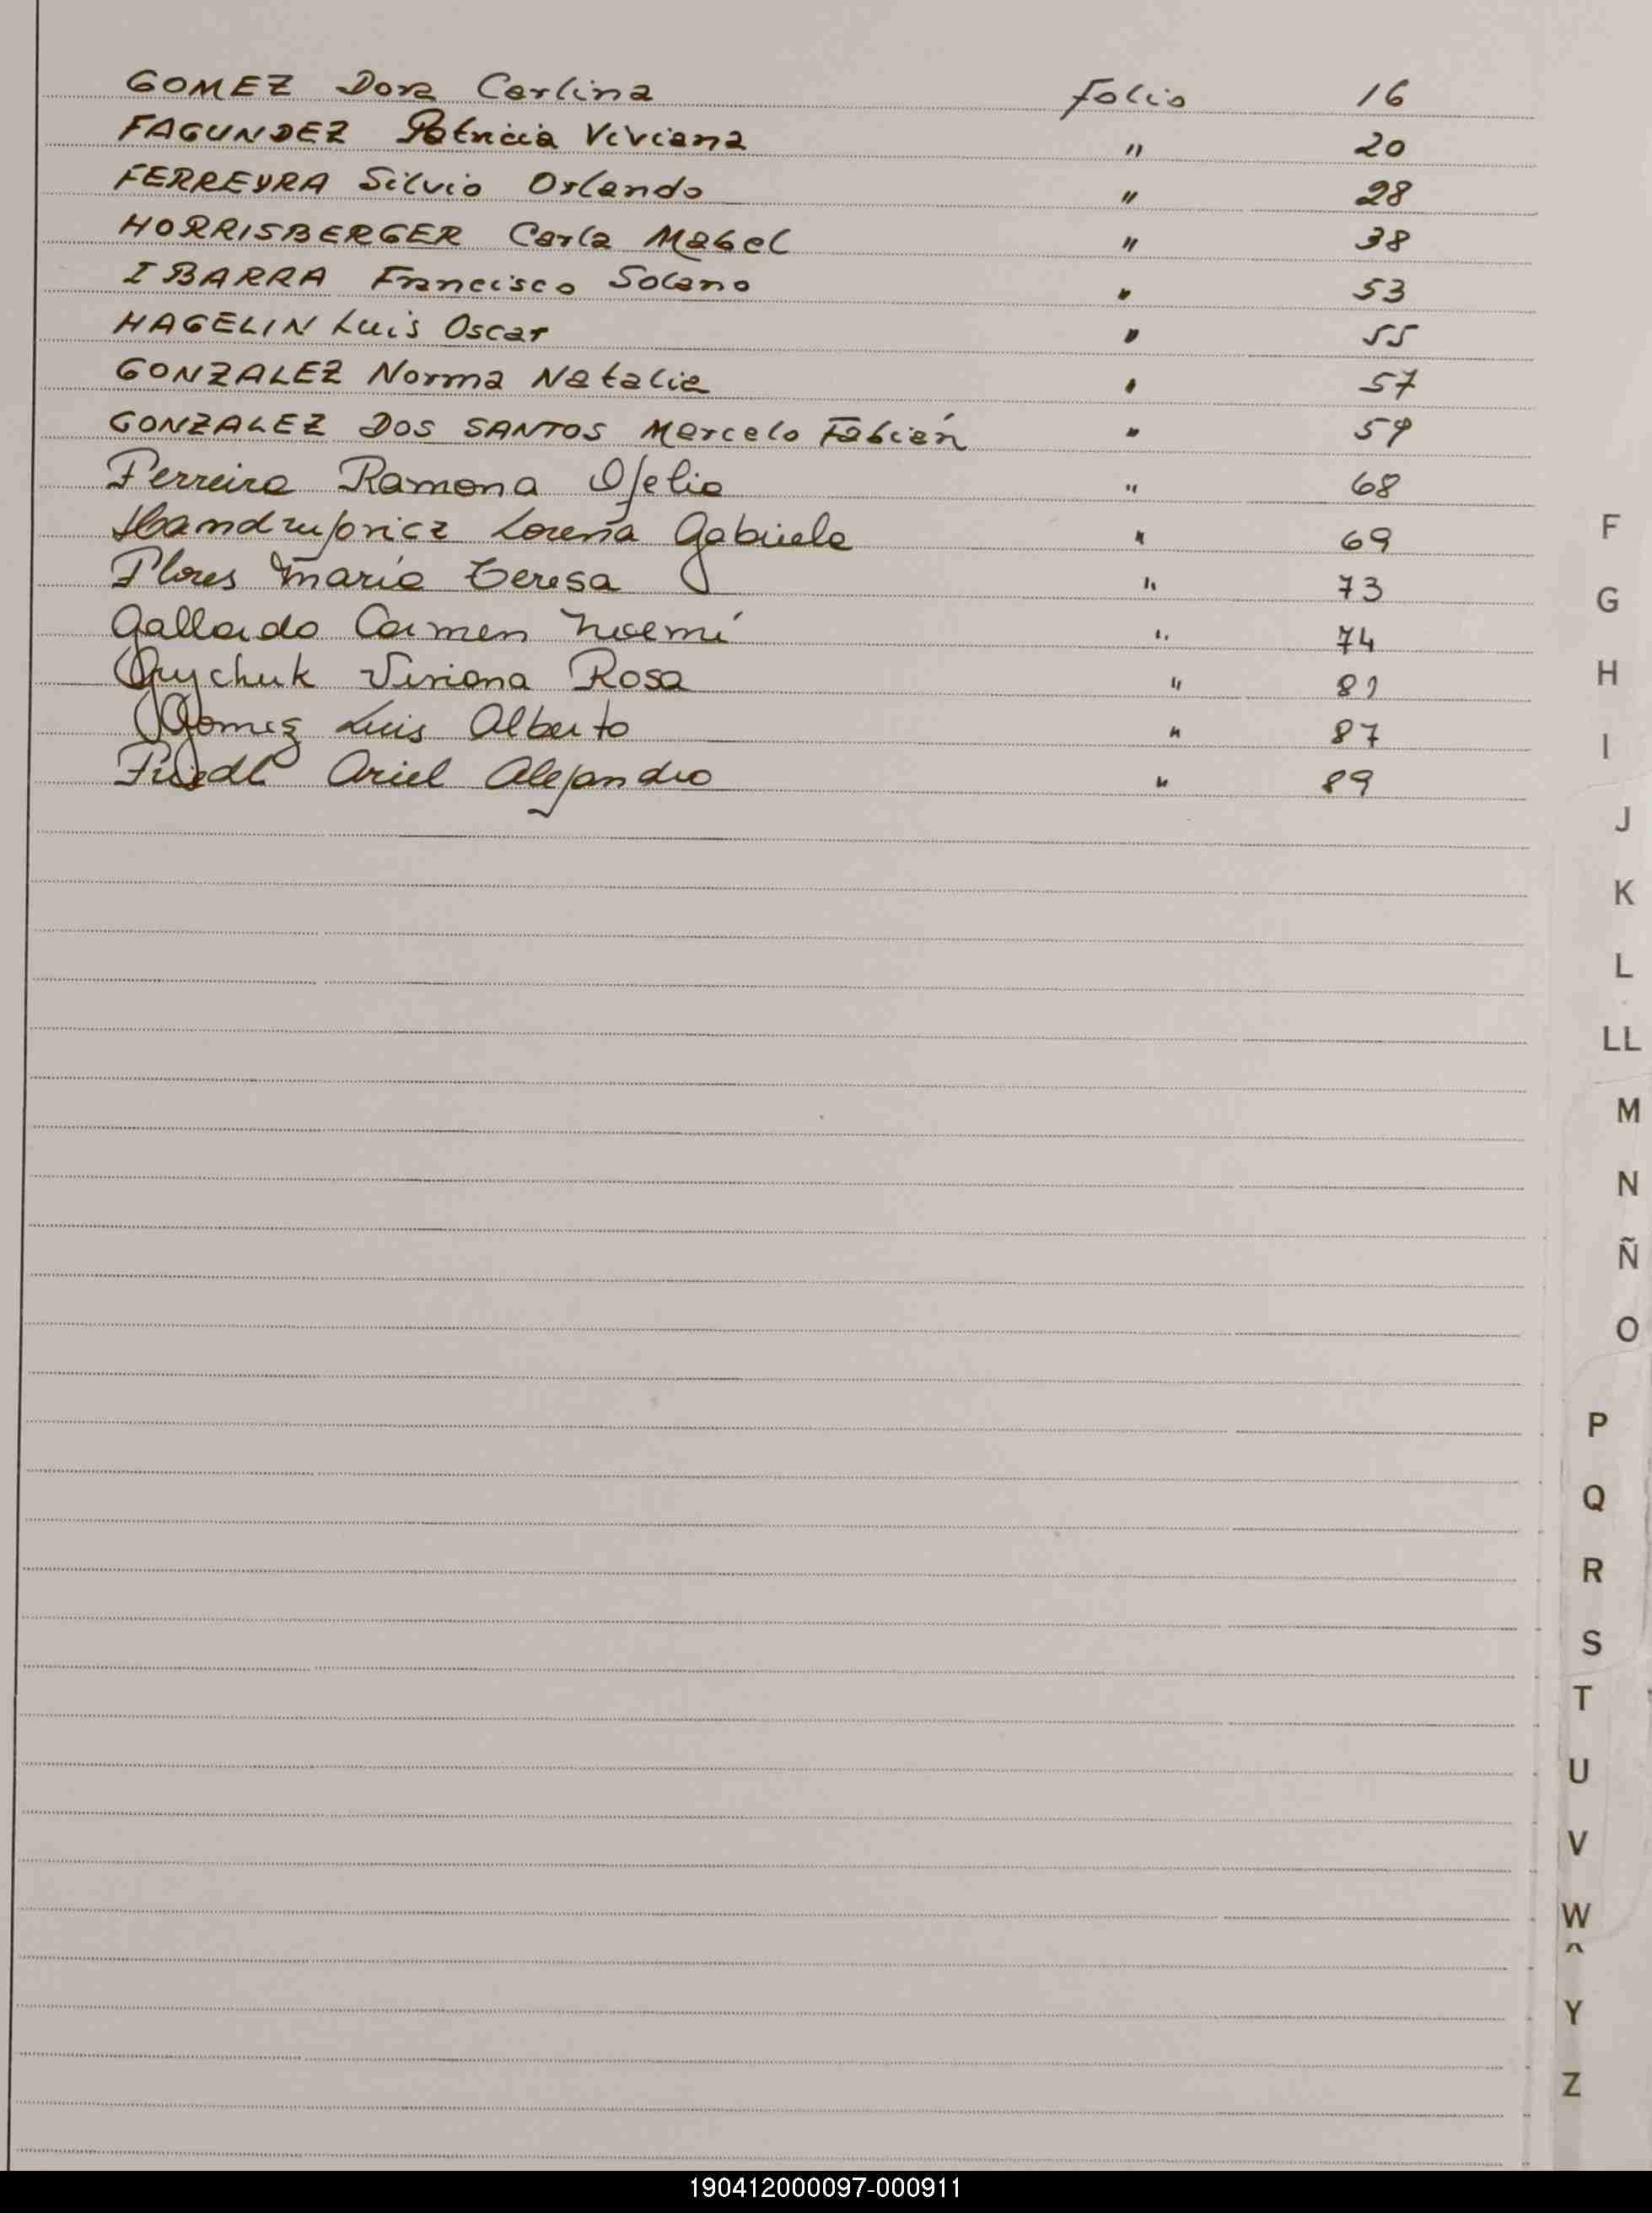 GOMEZ Dora Carlina Folio 16
FAGUNDEZ Patricia Viviana " 20
FERREYRA Silvio Orlando " 28
HORRISBERGER Carla Mabel " 38
IBARRA Francisco Solano " 53
HAGELIN Luis Oscar " 55
GONZALEZ Norma Natalia " 57
GONZALEZ DOS SANTOS Marcelo Fabián " 59
Ferreira Ramona Ofelia " 68
Lorena Gabriela " 69
Flores María Teresa " 73
Gallardo Carmen Noemí " 74
Viviana Rosa " 81
Gomez Luis Alberto " 87
Friedl Ariel Alejandro " 89
F
G
H
I
J
K
L
LL
M
N
Ñ
O
P
Q
R
S
T
U
V
W
Y
Z
190412000097-000911